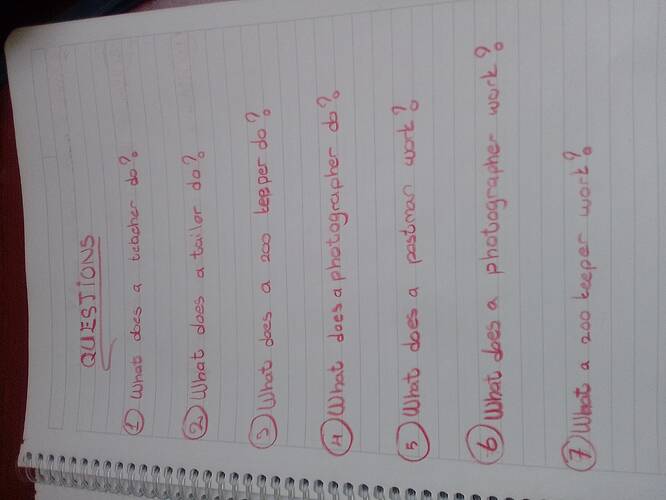 QUESTIONS
① What does a teacher do?
② What does a tailor do?
③ What does a zoo kepper do?
④ What does a photographer do?
⑤ What does a postman work?
⑥ What does a photographer work?
⑦ What a zoo keeper work?